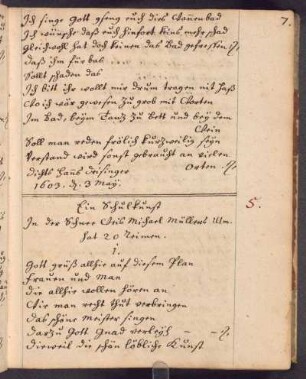 7.
Ich singe Gott gseng euch dies Wonenbad
Ich wünsche daß euch hinfort keins mehr schad
Gleichwohl hat doch keinen das Bad gefressen
daß ihm für bas
Sollt schaden das
Ich bitt ihr wollt mir drum tragen nit haß
Wo ich wär gewesen zu grob mit Worten
Im Bad, beÿm Tantz zu Bett und beÿ dem
Wein
Soll man reden frölich kurzweilig seÿn
Verstand wird sonst gebraucht an vielen
Orten.
Dichts Hans Deisinger
1603. d. 3 Maÿ.
Ein Schulkunst
5.
In der Schnee Weis Michael Müllers Ulm.
hat 20 Reimen.
1.
Gott grüß allhie auf diesem Plan
Frauen und Man
Die allhie wollen hören an
Wie man recht thut verbringen
das schöne Meister singen
darzu Gott Gnad verleÿh
dieweil die schön löbliche Kunst